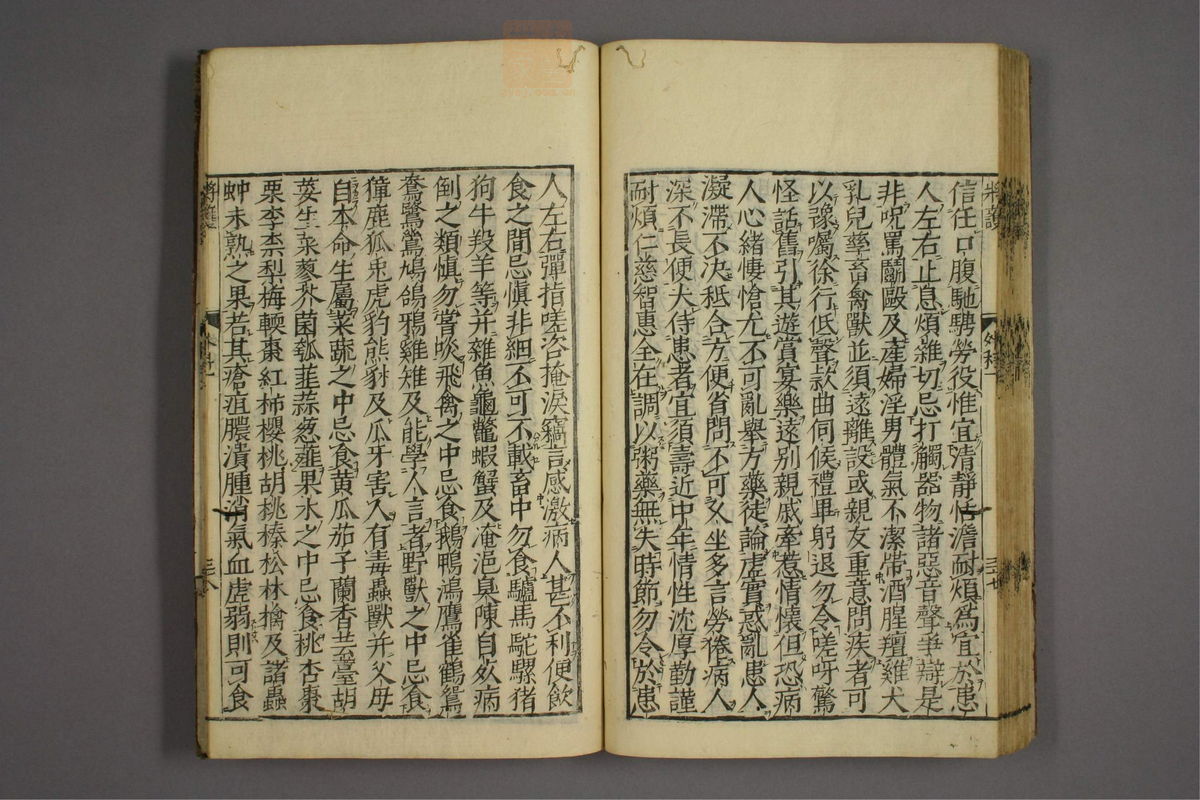 信任口腹馳騁勞役惟宜清靜恬澹耐煩爲宜於患
人左右止息煩雜切忌打觸器物諸惡音聲爭辯是
非呪罵鬭毆及產婦淫男體氣不潔帶酒腥羶雞犬
乳兒孳畜禽獸並須遠離設或親友重意問疾者可
以豫囑徐行低聲款曲伺候禮畢躬退勿令嗟呀驚
怪話舊引其遊賞宴樂遠別親戚牽惹情懷但恐病
人心緒悽愴尤不可亂舉方藥徒論虛實惑亂患人
凝滯不决秪合方便省問不可久坐多言勞倦病人
深不長便大侍患者宜須壽近中年情性沈厚勤謹
耐煩仁慈智惠全在調以粥藥無失時節勿令於患
人左右彈指嗟咨掩淚竊言感激病人甚不利便飲
食之間忌愼非細不可不載畜中勿食驢馬駝騾猪
狗牛羖羊等并雜魚龜鼈蝦蟹及淹浥臭陳自死病
倒之類愼勿嘗啖飛禽之中忌食鵝鴨鴻鷹雀鶴鴛
鴦鷺鶯鳩鴿鴉雞雉及能學人言者野獸之中忌食
獐鹿狐兎虎豹熊豺及瓜牙害人有毒蟲獸并父母
自本命生屬菜蔬之中忌食黃瓜茄子蘭香芸薹胡
荽生菜蓼芥菌瓠韭蒜葱薤果木之中忌食桃杏棗
栗李柰梨梅軟棗紅柿櫻桃胡桃榛松林檎及諸蟲
蚛未熟之果若其瘡疽膿潰腫消氣血虛弱則可食
外科一